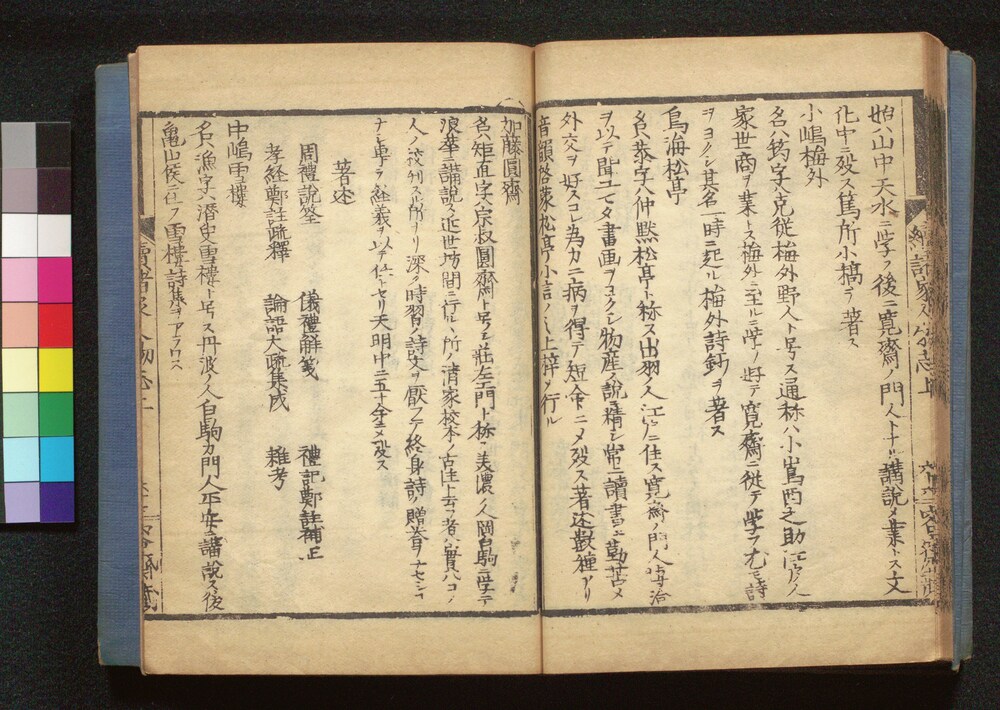 始ハ山中天水ニ学ヒ後ニ寛齋ノ門人トナル講説ヲ業トス文
化中ニ歿ス篤所小稿ヲ著ス
小嶋梅外
名ハ筠字克從梅外野人ト号ス通称ハ小嶌酉之助江戸ノ人
家世商ヲ業トス梅外ニ至ル学ヲ好テ寛齋ニ從テ学フ尤モ詩
ヲヨクシ其名一時ニ起ル梅外詩鈔ヲ著ス
鳥海松亭
名ハ恭字ハ仲黙松亭ト称ス出羽ノ人江戸ニ住ス寛齋ノ門人
ヲ以テ聞ユ又書画ヲヨクシ物産ノ說ニ精シ常ニ讀書ニ勤苦シ
外交ヲ好スコレ為カニ病ヲ得テ短命ニシ歿ス著述數種アリ
音韻啓蒙松亭小言ノミ上梓シ行ル
加藤圓齋
名ハ矩直字ハ宗叔圓齋ト号シ荘左エ門ト称ス美濃ノ人岡白駒ニ学テ
浪華ニ講説ス近世坊間ニ行ルヽ所ノ清家校本ノ古注ト云者ハ實ハコノ
人ノ校刋スル所ナリ深ク時習ノ詩文ヲ厭フテ終身詩ノ贈答ヲナセシコ
ナシ專ラ経義ヲ以テ任トセリ天明中ニ五十余ニシ歿ス
著述
周禮說筌 儀禮解箋 禮記鄭註補正
孝経鄭註疏釋 論語大疏集成 雑考
中嶋雪樓
名ハ漁字ハ潛史雪樓ト号ス丹波ノ人白駒カ門人平安ニ講說ス後
亀山侯ニ仕フ雪樓詩集ヲアラワス